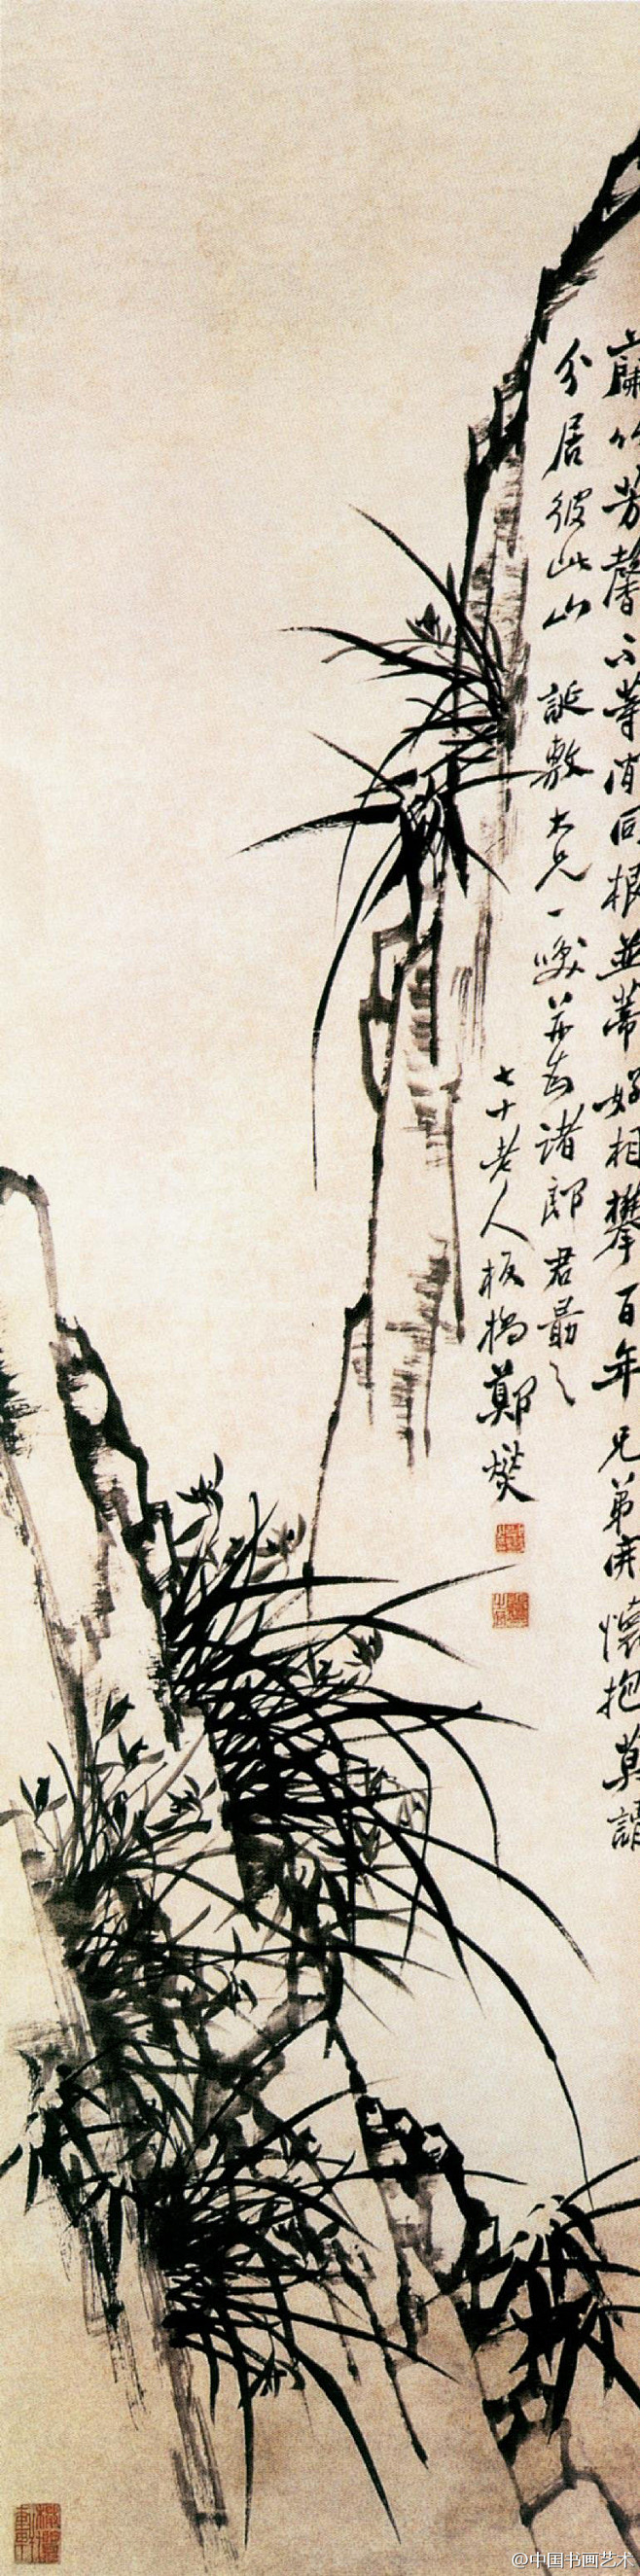 蘭竹芳馨不等閒同根並蒂好相攀百年兄弟開懷抱莫謂
分居彼此山 誕敷大兄一笑並為諸郎君勖之
七十老人板橋鄭燮
@中国书画艺术